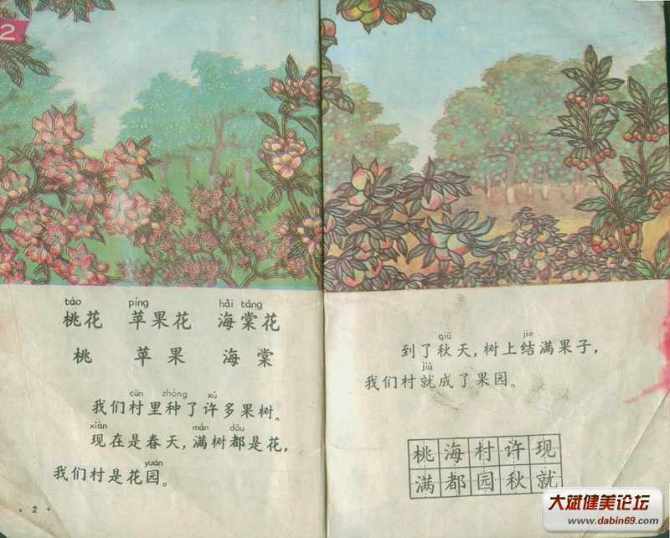 2
táo píng hǎi táng
桃花 苹果花 海棠花
桃 苹果 海棠
cūn zhòng xǔ
我们村里种了许多果树。
xiàn mǎn dōu
现在是春天，满树都是花，
yuán
我们村是花园。
· 2 ·
qiū jiē
到了秋天，树上结满果子，
jiù
我们村就成了果园。
桃 海 村 许 现
满 都 园 秋 就
大斌健美论坛
www.dabin69.com